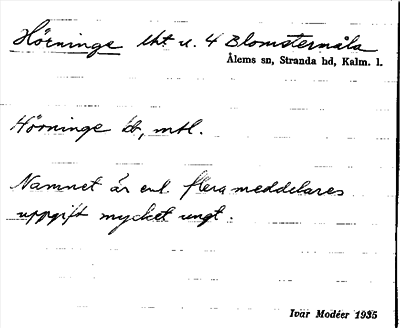 Hörninge lht u. 4 Blomstermåla
Ålems sn, Stranda hd, Kalm. l.
Hörninge by, mtl.
Namnet är enl. flera meddelares
uppgift mycket ungt.
Ivar Modéer 1935